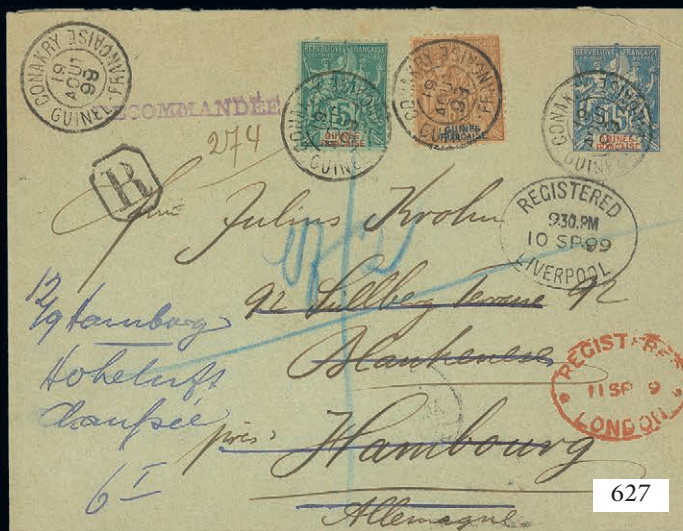 CONAKRY
GUINEE FRANCAISE
RECOMMANDÉE
274
R
RÉPUBLIQUE FRANÇAISE
5
GUINÉE
FRANÇAISE
RÉPUBLIQUE FRANÇAISE
GUINÉE
FRANÇAISE
RÉPUBLIQUE FRANÇAISE
15
GUINÉE
FRANÇAISE
REGISTERED
9.30.PM
10 SP 99
LIVERPOOL
Julius Krohn
92 Süllberg terrasse 92
Blankenese
près: Hambourg
Allemagne.
12/9 Hamburg
Hoheluft
Chaussée
6 I
REGISTERED
11 SP 9
LONDON
627